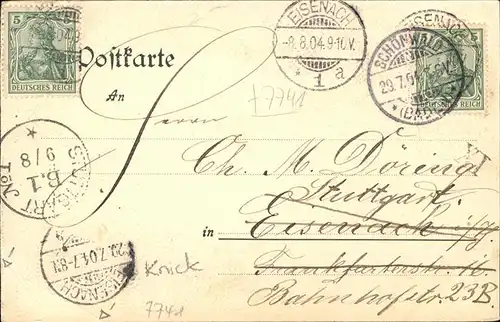 5
DEUTSCHES REICH
EISENACH
-8.8.04.9-10V.
* 1 a
SCHÖNWALD
29.7.04
*(BAD
5
DEUTSCHES REICH
Postkarte
An
+7741
Herrn
STUTTGART
No I
B.1
9/8
Ch. M. Döring
Stuttgart.
in Eisenach
Frankfurterstr.
Bahnhofstr. 23B.
EISENACH
29.7.04.7-8
Knick
7741